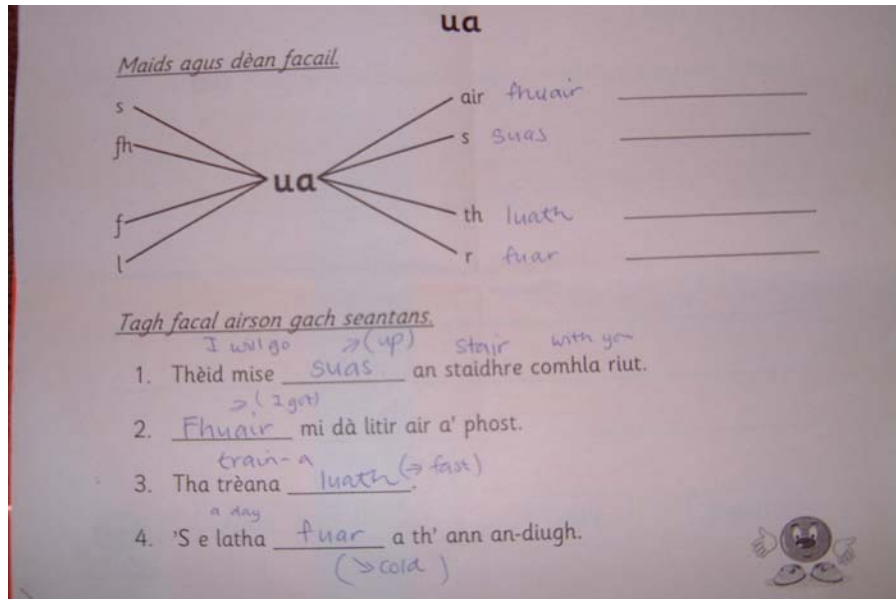 ua
Maids agus dèan facail.
s
fh
f
l
ua
air fhuair
s suas
th luath
r fuar
Tagh facal airson gach seantans.
I will go → (up) stair with you
1. Thèid mise suas an staidhre comhla riut.
→ (I got)
2. Fhuair mi dà litir air a' phost.
train-a
3. Tha trèana luath (→ fast).
a day
4. 'S e latha fuar a th' ann an-diugh.
(→ cold)